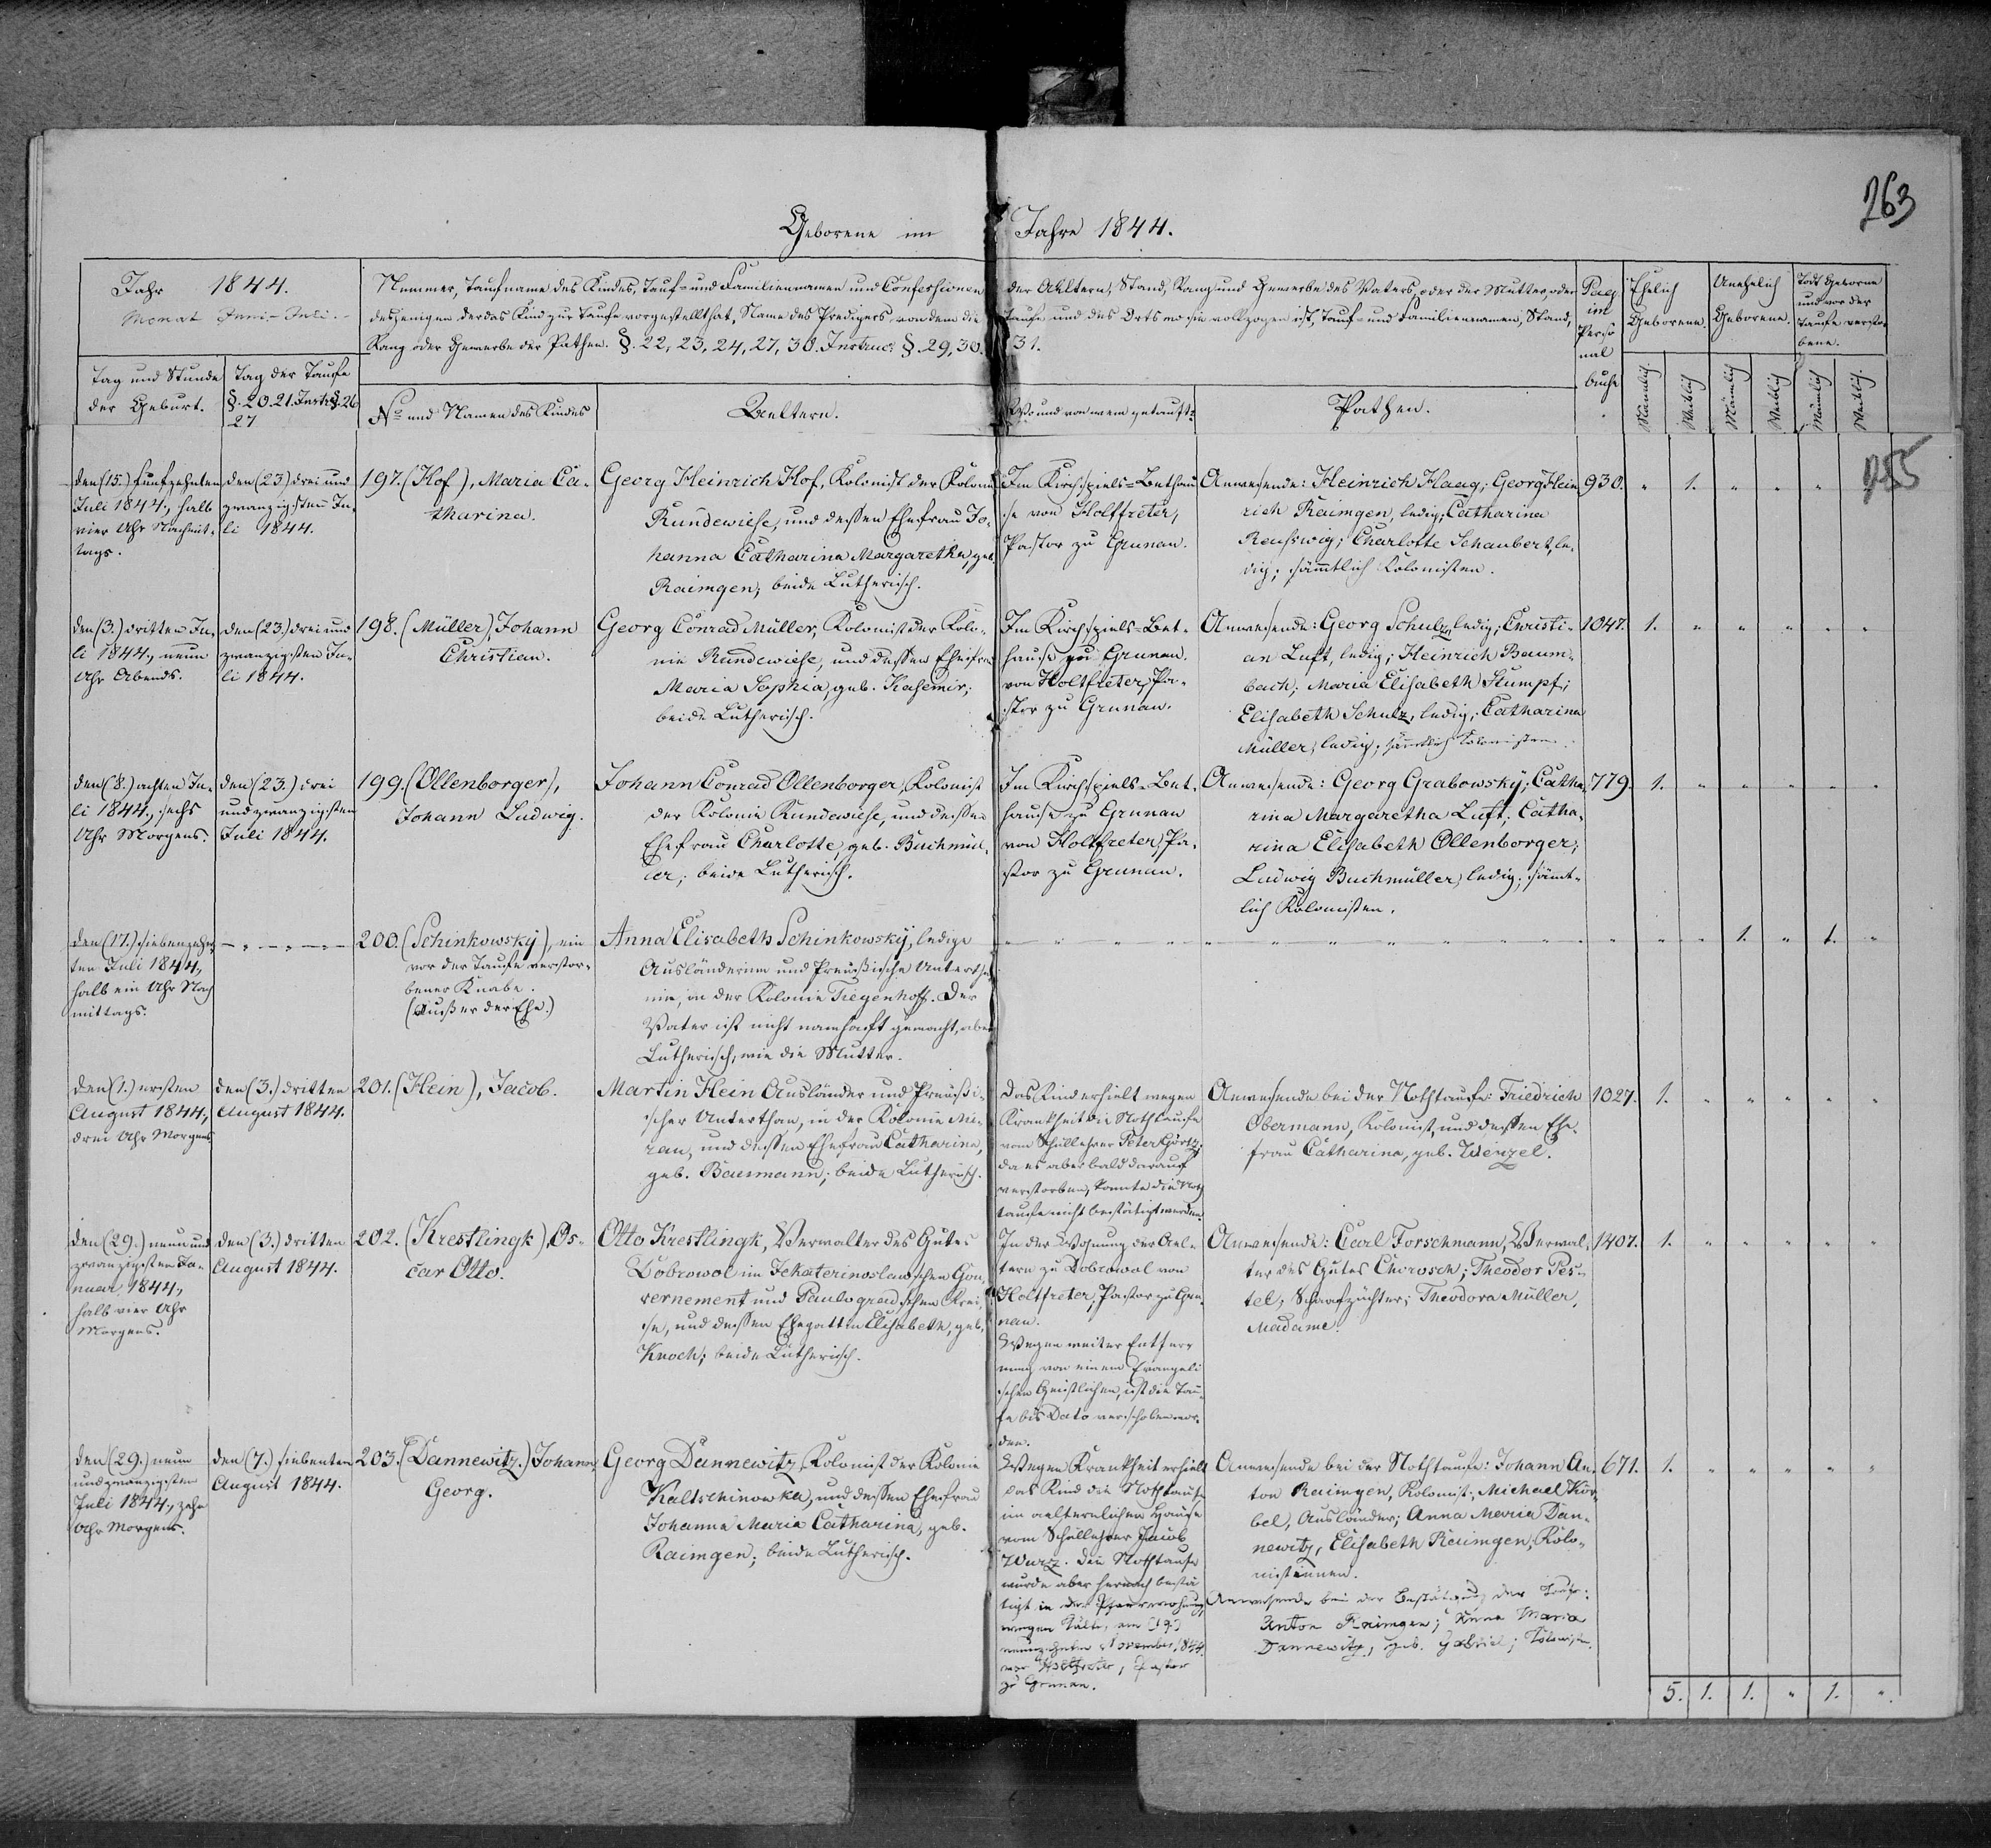 263
Geborene im Jahre 1844.
Jahr 1844.
Monat Juni-Juli.
Tag und Stunde
der Geburt.
Tag der Taufe
§. 20. 21. Instr. §. 26
27
Nummer, Taufname des Kindes, Tauf- und Familiennamen und Confessionen der Aeltern, Stand, Rang und Gewerbe des Vaters oder der Mutter, oder
desjenigen der das Kind zur Taufe vorgestellt hat, Name des Predigers von dem die Taufe und des Orts wo sie vollzogen ist, Tauf- und Familiennamen, Stand,
Rang oder Gewerbe der Pathen. §. 22, 23, 24, 27, 30. Instruc: §. 29, 30. 31.
No und Namen des Kindes
Aeltern.
Wo und von wem getauft.
Pathen.
Pag
im
Perso
nal
buche
Ehelich
Geborene.
Unehelich
Geborene.
Todt Geborne
und vor der
Taufe verstor-
bene.
Männlich
Weiblich
Männlich
Weiblich
Männlich
Weiblich
255
den (15.) funfzehnten
Juli 1844., halb
vier Uhr Nachmit-
tags.
den (23) drei und
zwanzigsten Ju-
li 1844.
197. (Hof), Maria Ca-
tharina.
Georg Heinrich Hof, Kolonist der Kolonie
Rundewiese, und dessen Ehefrau Jo-
hanna Catharina Margaretha, geb.
Raimgen; beide Lutherisch.
Im Kirchspiels-Bethau
se von Holtfreter,
Pastor zu Grunau.
Anwesende: Heinrich Haag; Georg Hein-
rich Raimgen, ledig; Catharina
Reuswig; Charlotte Schaubert, le-
dig; sämmtlich Kolonisten.
930. " 1. " " "
den (3.) dritten Ju-
li 1844., neun
Uhr Abends.
den (23.) drei und
zwanzigsten Ju-
li 1844.
198. (Müller), Johann
Christian.
Georg Conrad Müller, Kolonist der Kolo-
nie Rundewiese, und dessen Ehefrau
Maria Sophia, geb. Kasemir;
beide Lutherisch.
Im Kirchspiels-Bet-
hause zu Grunau.
von Holtfreter, Pa-
stor zu Grunau.
Anwesende: Georg Schulz, ledig; Christi-
an Luft, ledig; Heinrich Baum-
bach; Maria Elisabeth Stumpf;
Elisabeth Schulz, ledig; Catharina
Müller, ledig; sämtlich Kolonisten.
1047. 1. " " " " "
den (8.) achten Ju-
li 1844., sechs
Uhr Morgens.
den (23.) drei
und zwanzigsten
Juli 1844.
199. (Ollenborger),
Johann Ludwig.
Johann Conrad Ollenborger, Kolonist
der Kolonie Rundewiese, und dessen
Ehefrau Charlotte, geb. Buchmül-
ler; beide Lutherisch.
Im Kirchspiels-Bet-
hause zu Grunau
von Holtfreter, Pa-
stor zu Grunau.
Anwesende: Georg Grabowsky; Catha-
rina Margaretha Luft; Catha-
rina Elisabeth Ollenborger;
Ludwig Buchmüller, ledig; sämt-
lich Kolonisten.
779. 1. " " " " "
den (17.) siebenzehn-
ten Juli 1844.,
halb ein Uhr Nach
mittags.
200. (Schinkowsky), ein
vor der Taufe verstor-
bener Knabe.
(Außer der Ehe.)
Anna Elisabeth Schinkowsky, ledige
Ausländerinn und Preußische Untertha-
nin, in der Kolonie Tiegenhoff. Der
Vater ist nicht namhaft gemacht, aber
Lutherisch, wie die Mutter.
" " 1. " 1. "
den (1.) ersten
August 1844.,
drei Uhr Morgens
den (3.) dritten
August 1844.
201. (Hein), Jacob.
Martin Hein Ausländer und Preußi-
scher Unterthan, in der Kolonie Mi-
rau, und dessen Ehefrau Catharina,
geb. Baumann; beide Lutherisch.
Das Kind erhielt wegen
Krankheit die Nothtaufe
vom Schullehrer Peter Görtz;
da es aber bald darauf
verstorben, konnte die Noth
taufe nicht bestätigt werden.
Anwesende bei der Nothtaufe: Friedrich
Obermann, Kolonist, und dessen Ehe-
frau Catharina, geb. Wenzel.
1027. 1. " " " " "
den (29.) neun und
zwanzigsten Ja-
nuar 1844.,
halb vier Uhr
Morgens.
den (3.) dritten
August 1844.
202. (Krestlingk), Os-
car Otto.
Otto Krestlingk, Verwalter des Gutes
Dobrowol im Jekaterinoslawschen Gou-
vernement und Pawlogradschen Krei-
se, und dessen Ehegattin Elisabeth, geb.
Knoch; beide Lutherisch.
In der Wohnung der Ael-
tern zu Dobrowol von
Holtfreter, Pastor zu Gru-
nau.
Wegen weiter Entfer-
nung von einem Evangeli
schen Geistlichen, ist die Tau-
fe bis Dato verschoben wor-
den.
Anwesende: Carl Forschmann, Verwal-
ter des Gutes Chorosch; Theodor Pes-
tel, Schaafzüchter; Theodora Müller,
Madame.
1407. 1. " " " " "
den (29.) neun
und zwanzigsten
Juli 1844., zehn
Uhr Morgens.
den (7.) siebenten
August 1844.
203. (Dannewitz.) Johann
Georg.
Georg Dannewitz, Kolonist der Kolonie
Kaltschinowka, und dessen Ehefrau
Johanna Maria Catharina, geb.
Raimgen; beide Lutherisch.
Wegen Krankheit erhielt
das Kind die Nothtaufe
im aelterlichen Hause
vom Schullehrer Jacob
Wurz. Die Nothtaufe
wurde aber hernach bestä
tigt in der Pfarrwohnung,
wegen Kälte, am (19)
neunzehnten November, 1844.
von Holtfreter, Pastor
zu Grunau.
Anwesende bei der Nothtaufe: Johann An-
ton Raimgen, Kolonist; Michael Kor-
bel, Ausländer; Anna Maria Dan-
newitz, Elisabeth Raimgen, Kolo-
nistinnen.
Anwesende bei der Bestätigung der Taufe:
Anton Raimgen; Anna Maria
Dannewitz, geb. Gabriel; Kolonisten.
671. 1. " " " " "
5. 1. 1. " 1. "